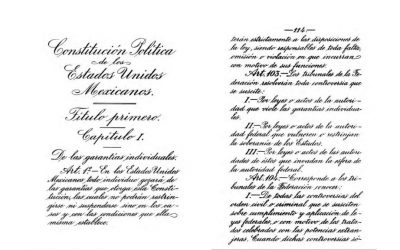 Constitución Política
de los
Estados Unidos
Mexicanos.
Título primero.
Capítulo I.
De las garantías individuales.
Art. 1º — En los Estados Unidos
Mexicanos todo individuo gozará de
las garantías que otorga esta Consti-
tución, las cuales no podrán restrin-
girse ni suspenderse, sino en los ca-
sos y con las condiciones que ella
misma establece.
— 114 —
tarán estrictamente a las disposiciones de
la ley, siendo responsables de toda falta,
omisión o violación en que incurran
con motivo de sus funciones.
Art. 103. — Los tribunales de la Fe-
deración resolverán toda controversia que
se suscite:
I. — Por leyes o actos de la autori-
dad que viole las garantías individua-
les.
II. — Por leyes o actos de la autori-
dad federal que vulneren o restrinjan
la soberanía de los Estados.
III. — Por leyes o actos de las autori-
dades de éstos que invadan la esfera de
la autoridad federal.
Art. 104. — Corresponde a los tri-
bunales de la Federación conocer:
I. — De todas las controversias del
orden civil o criminal que se susciten
sobre cumplimiento y aplicación de le-
yes federales, o con motivo de los trata-
dos celebrados con las potencias extran-
jeras. Cuando dichas controversias só-